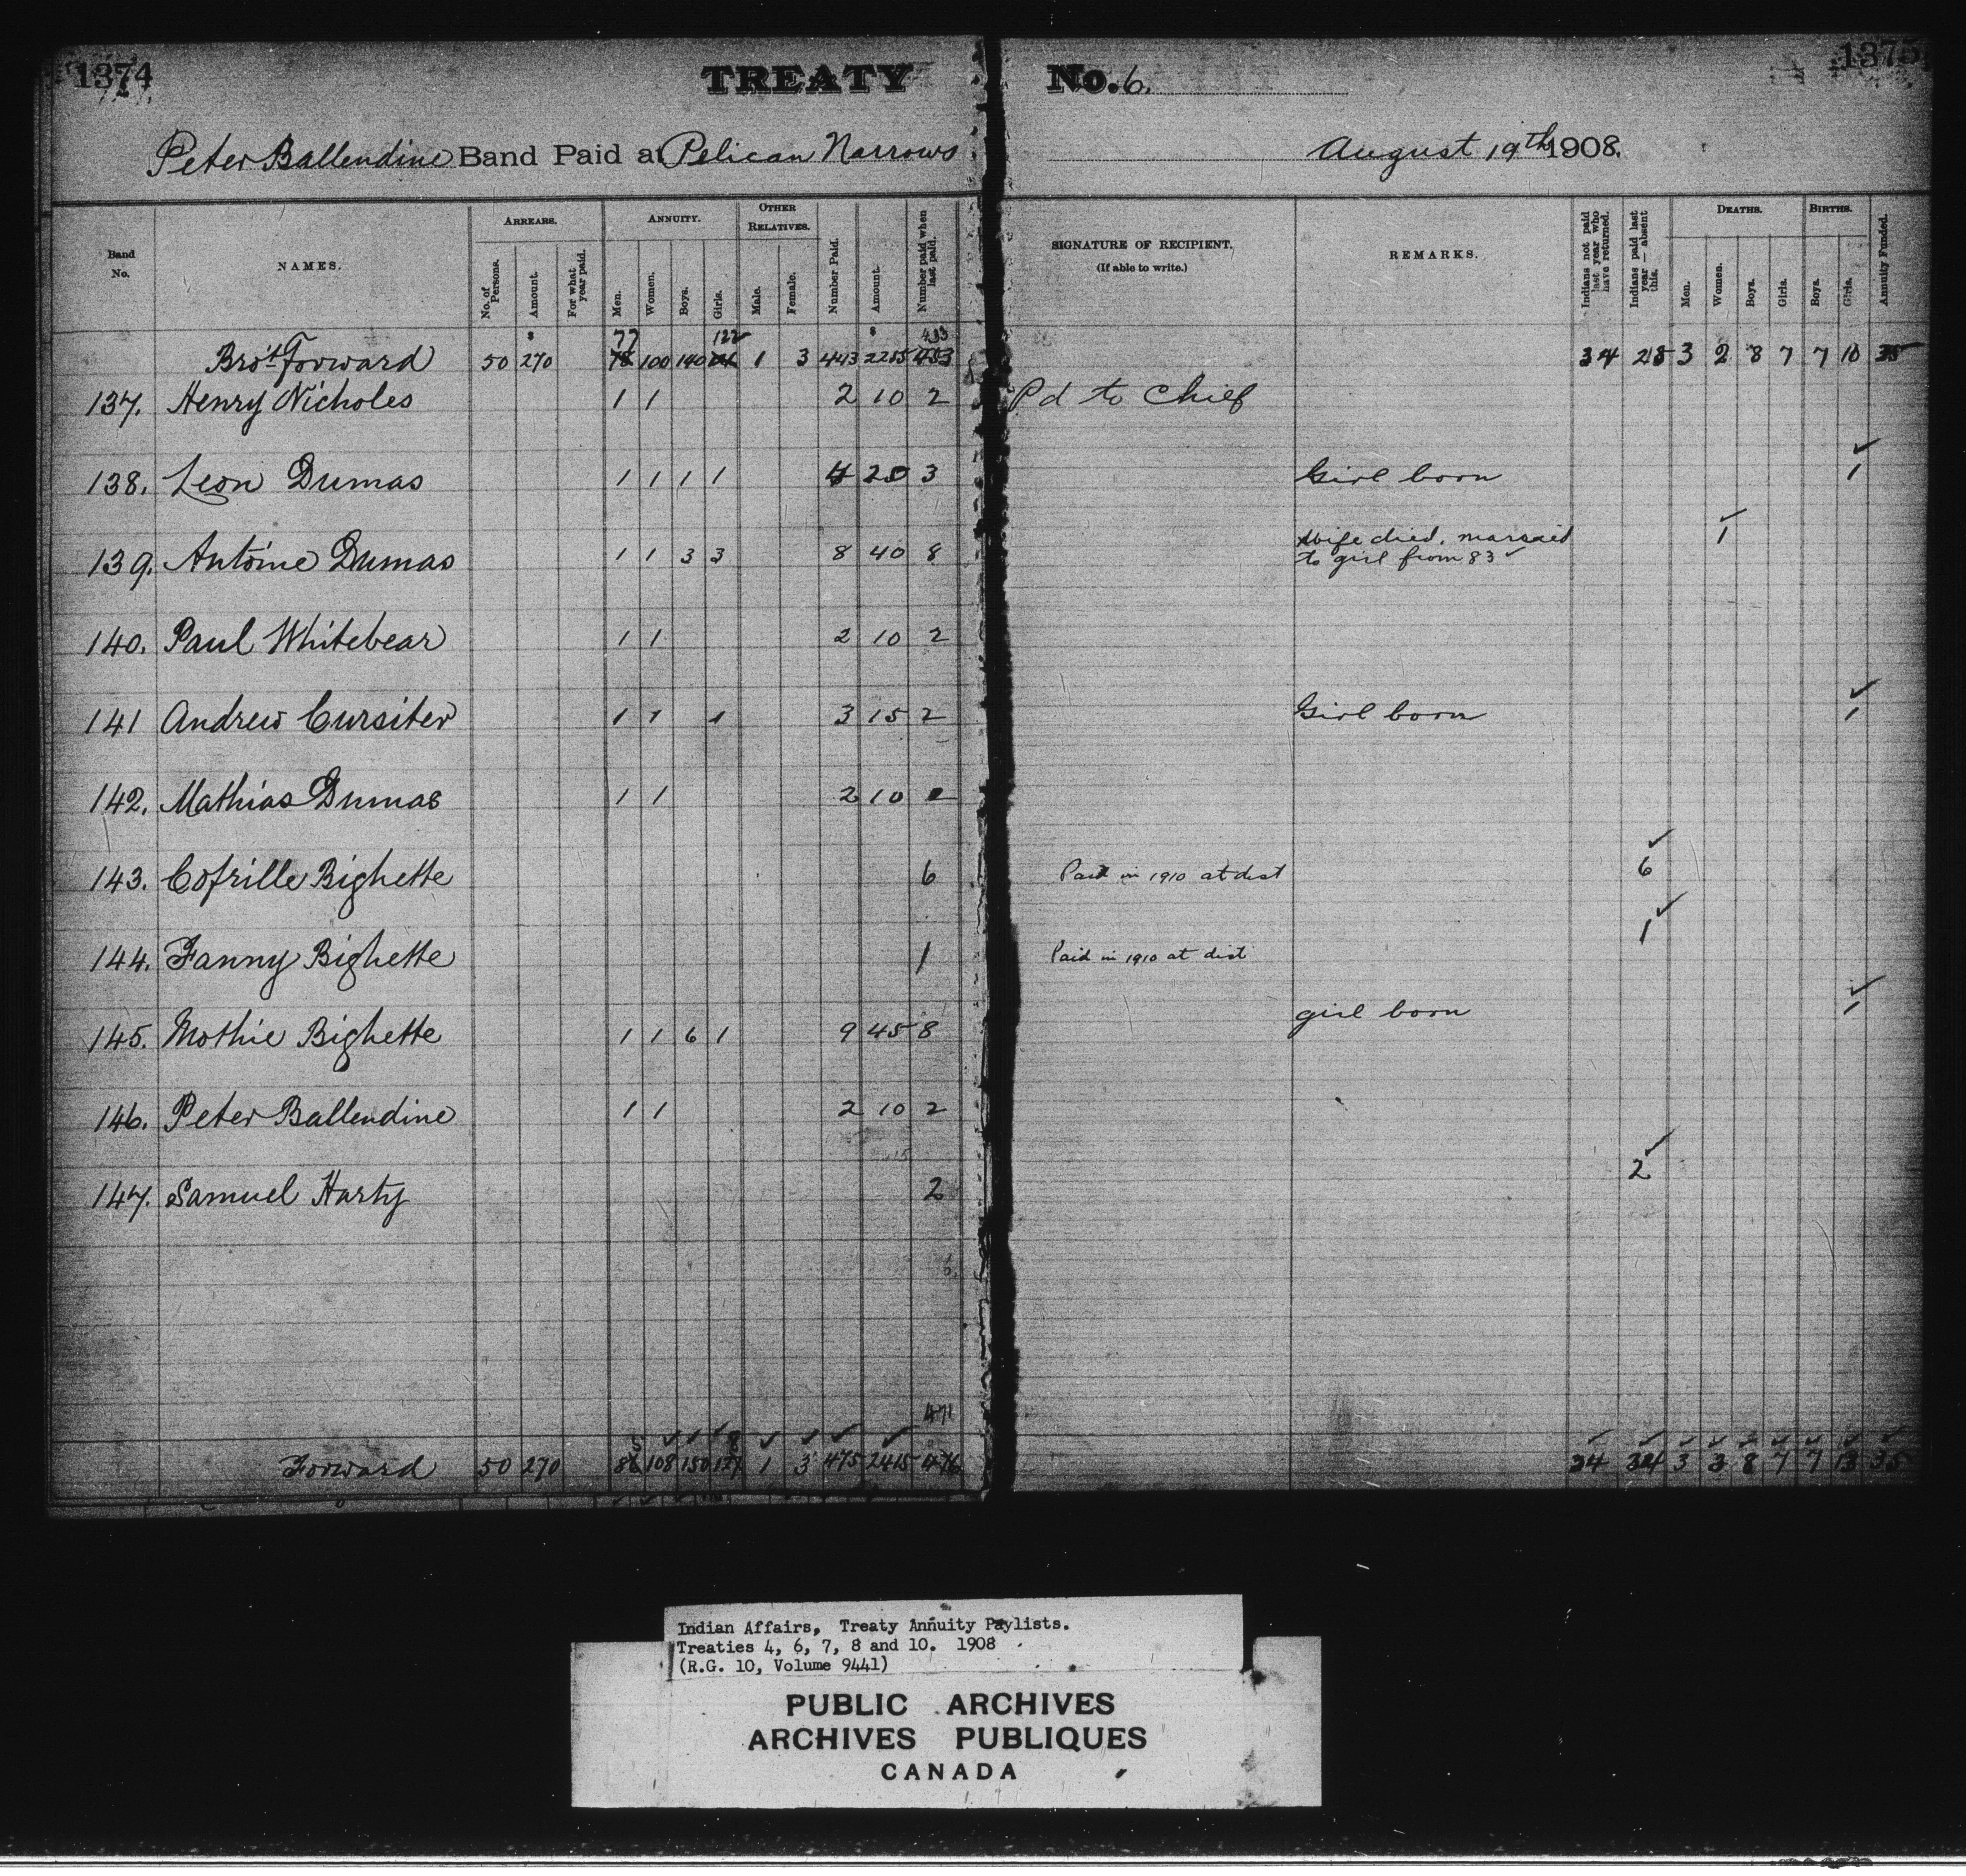 1374 TREATY No. 6. 1375
Peter Ballendine Band Paid at Pelican Narrows August 19th 1908.
Band No. NAMES. ARREARS. No. of Persons. Amount. For what year paid. ANNUITY. Men. Women. Boys. Girls. OTHER RELATIVES. Male. Female. Number Paid. Amount. Number paid when last paid. SIGNATURE OF RECIPIENT. (If able to write.) REMARKS. Indians not paid last year who have returned. Indians paid last year — absent this. DEATHS. Men. Women. Boys. Girls. BIRTHS. Boys. Girls. Annuity Funded.
77 122 433
Bro't Forward 50 270 100 140 1 3 443 2255 34 28 3 2 8 7 7 10 35
137. Henry Nicholes 1 1 2 10 2 Pd to Chief
138. Leon Dumas 1 1 1 1 4 20 3 Girl born 1
139. Antoine Dumas 1 1 3 3 8 40 8 Wife died, married to girl from 83 1
140. Paul Whitebear 1 1 2 10 2
141 Andrew Cursiter 1 1 1 3 15 2 Girl born 1
142. Mathias Dumas 1 1 2 10 2
143. Cofrille Bighette 6 Paid in 1910 at dist 6
144. Fanny Bighette 1 Paid in 1910 at dist 1
145. Mothie Bighette 1 1 6 1 9 45 8 girl born 1
146. Peter Ballendine 1 1 2 10 2
147. Samuel Harty 2 2
471
Forward 50 270 108 150 1 3 475 2415 476 34 34 3 3 8 7 7 13 35
Indian Affairs, Treaty Annuity Paylists.
Treaties 4, 6, 7, 8 and 10. 1908
(R.G. 10, Volume 9441)
PUBLIC ARCHIVES
ARCHIVES PUBLIQUES
CANADA